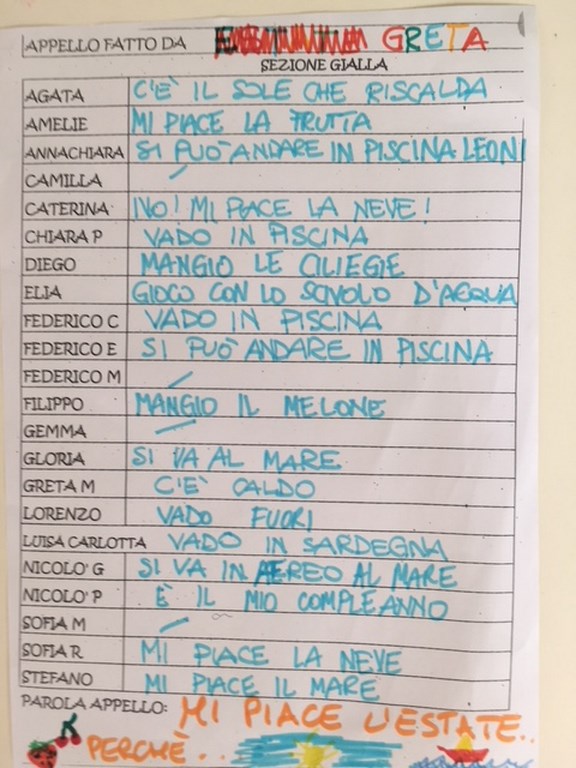 APPELLO FATTO DA GRETA
SEZIONE GIALLA
AGATA C'È IL SOLE CHE RISCALDA
AMELIE MI PIACE LA FRUTTA
ANNACHIARA SI PUÒ ANDARE IN PISCINA LEONI
CAMILLA /
CATERINA NO! MI PIACE LA NEVE!
CHIARA P VADO IN PISCINA
DIEGO MANGIO LE CILIEGIE
ELIA GIOCO CON LO SCIVOLO D'ACQUA
FEDERICO C VADO IN PISCINA
FEDERICO E SI PUÒ ANDARE IN PISCINA
FEDERICO M /
FILIPPO MANGIO IL MELONE
GEMMA /
GLORIA SI VA AL MARE
GRETA M C'È CALDO
LORENZO VADO FUORI
LUISA CARLOTTA VADO IN SARDEGNA
NICOLO' G SI VA IN AEREO AL MARE
NICOLO' P È IL MIO COMPLEANNO
SOFIA M /
SOFIA R MI PIACE LA NEVE
STEFANO MI PIACE IL MARE
PAROLA APPELLO: MI PIACE L'ESTATE..
PERCHÈ..